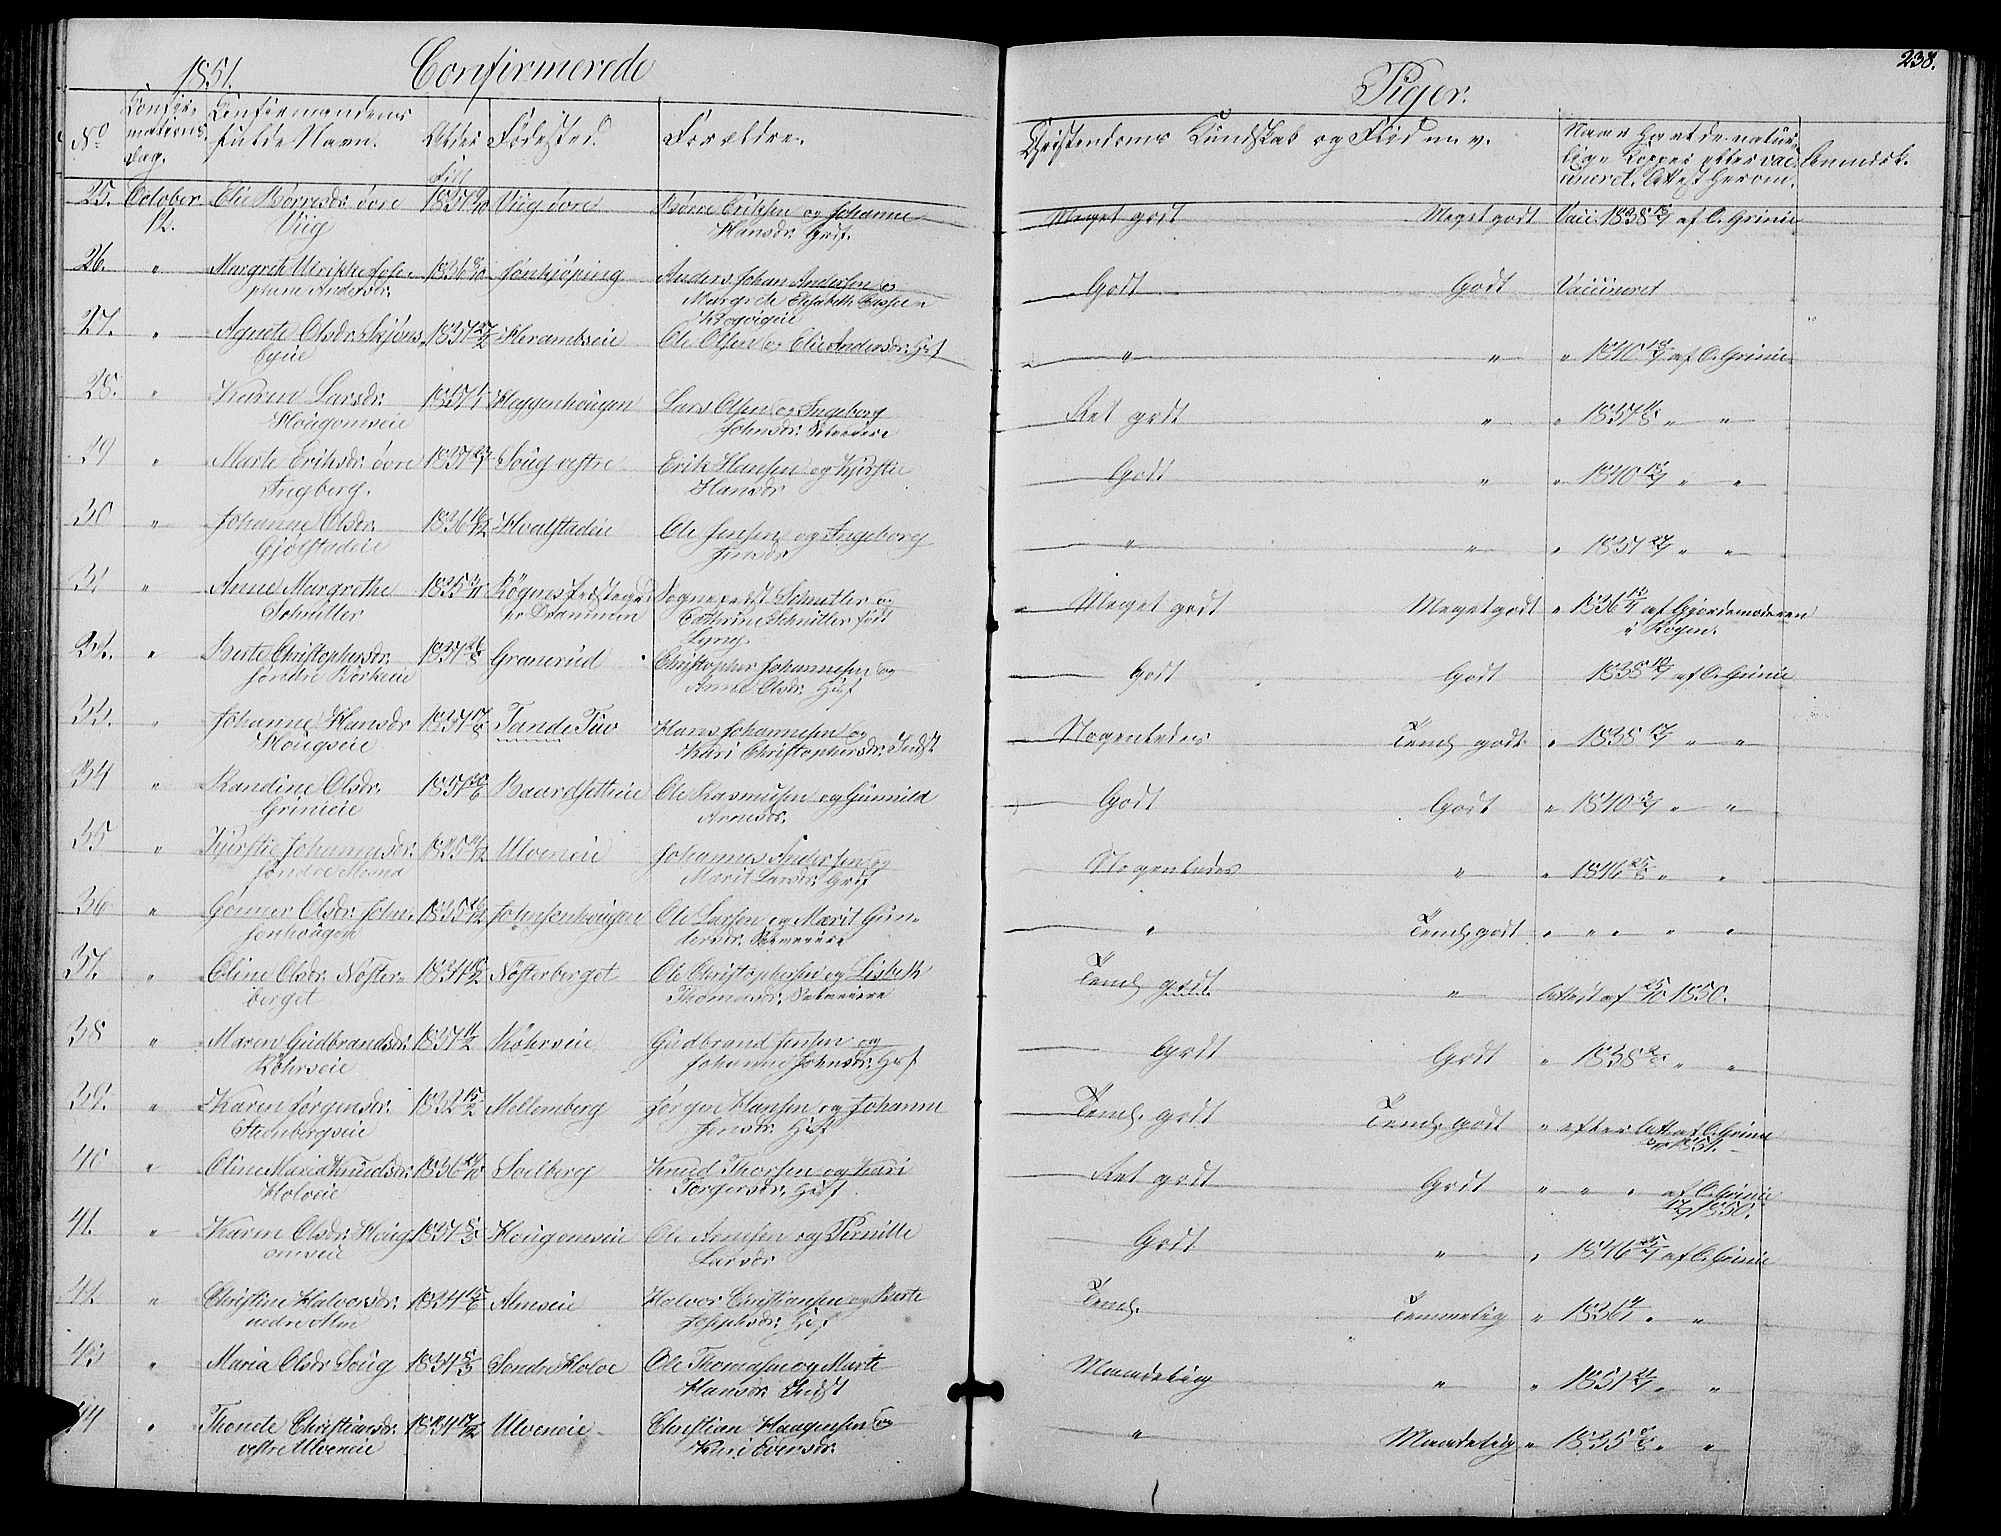 1851. Confirmerede Piger. 238.
No Confirmations Dag. Confirmandens fulde Navn. Alder Fødested. Forældre. Christendoms Kundskab og Flid m. v. Naar havt de naturlige Kopper eller vaccineret. Attest herom. Anmærk.
25. October 12. Elie Børresdr. øvre Viig 1837 Viig øvre Børre Eriksen og Johanne Hansdr. Meget godt Meget godt Vacc. 1838 af C. Grinie
26. " Margrete Ulrikke Josephine Andersdr. 1836 Jönkjöping Anders Johan Andersen og Margrete Elisabeth Godt Godt Vaccineret
27. " Agnete Olsdr. 1837 Ole Olsen og Elie Andersdr. Huusf " " " 1840 af C. Grinie
28. " Karen Larsdr. Hougomseie 1837 Heggenhougen Lars Olsen og Ingeborg Johnsdr. Selveiere Ret godt " " 1837 " "
29 " Marte Eriksdr. øvre Ingberg. 1837 Soug vestre Erik Hansen og Kjerstie Hansdr Godt " " 1840 " "
30 " Johanne Olsdr. Gjølstadeie 1836 Hvalstadeie Ole Jensen og Ingeborg Jensdr " " " 1837 " "
31 " Anne Margrethe Schnitler 1835 Røgens Præstegd pr Drammen Sognepræst Schnitler og Cathrine Schnitler født Lyng. Meget godt Meget godt " 1836 af Gjordemoderen i Røgen.
32. " Berte Christophersdr. søndre Børkeeie 1837 Granerud Christopher Johannesen og Anne Olsdr. Huusf Godt Godt 1838 af C. Grinie
33. " Johanne Hansdr Hougseie 1837 Tande Tuv Hans Johannesen og Kari Christophersdr. Indst Nogenledes Teml. godt " 1838 " "
34 " Randine Olsdr. Grinieie 1837 Baardsetteie Ole Rasmusen og Gunnild Arensdr. Godt Godt " 1840 " "
35 " Kjerstie Johannesdr. søndre Mosna 1835 Ulveneie Johannes Andersen og Marit Larsdr. Nogenledes " " 1846 " "
36 " Gønner Olsdr. Johnsenhougen 1835 Johnsenhougen Ole Larsen og Marit Gundersdr. Selveiere " Teml. godt " " " " "
37. " Oline Olsdr. Nøsterberget 1834 Nøsterberget Ole Christophersen og Lisbeth Thomasdr. Selveiere Teml. godt " Attest af 25/10 1850.
38 " Maren Gudbrandsdr. Röhrseie 1837 Röhrseie Gudbrand Jensen og Johanne Johnsdr. Huusf Godt Godt " 1838 " "
39. " Karen Jørgensdr. Steenbergseie 1832 15/2 Mellemberg Jørgen Hansen og Johanne Jensdr. Huusf Teml. godt Teml. godt " efter Att. af C. Grinie 1851.
40 " Oline Maria Knudsdr. Holveie 1836 Soelberg Knud Thorsen og Kari Torgersdr. Huusf Ret godt Godt " " " af C. Grinie 1850.
41. " Karen Olsdr. Hougomseie 1837 Hougomseie Ole Arnesen og Pernille Larsdr Godt " " 1846 af C. Grinie
42. " Christine Halvorsdr. nedre Alm 1834 15/6 Almseie Halvor Christiansen og Berte Josephsdr. Huusf Teml. Temmelig " 1836 " "
43 " Maria Olsdr. Soug 1834 Søndre Holve Ole Thomasen og Marte Hansdr. Indst Maadelig " " 1851 " "
44 " Thonete Christiansdr. vestre Ulveneie 1834 Ulveneie Christian Haagensen og Kari Evensdr. " Maadelig " 1835 " "